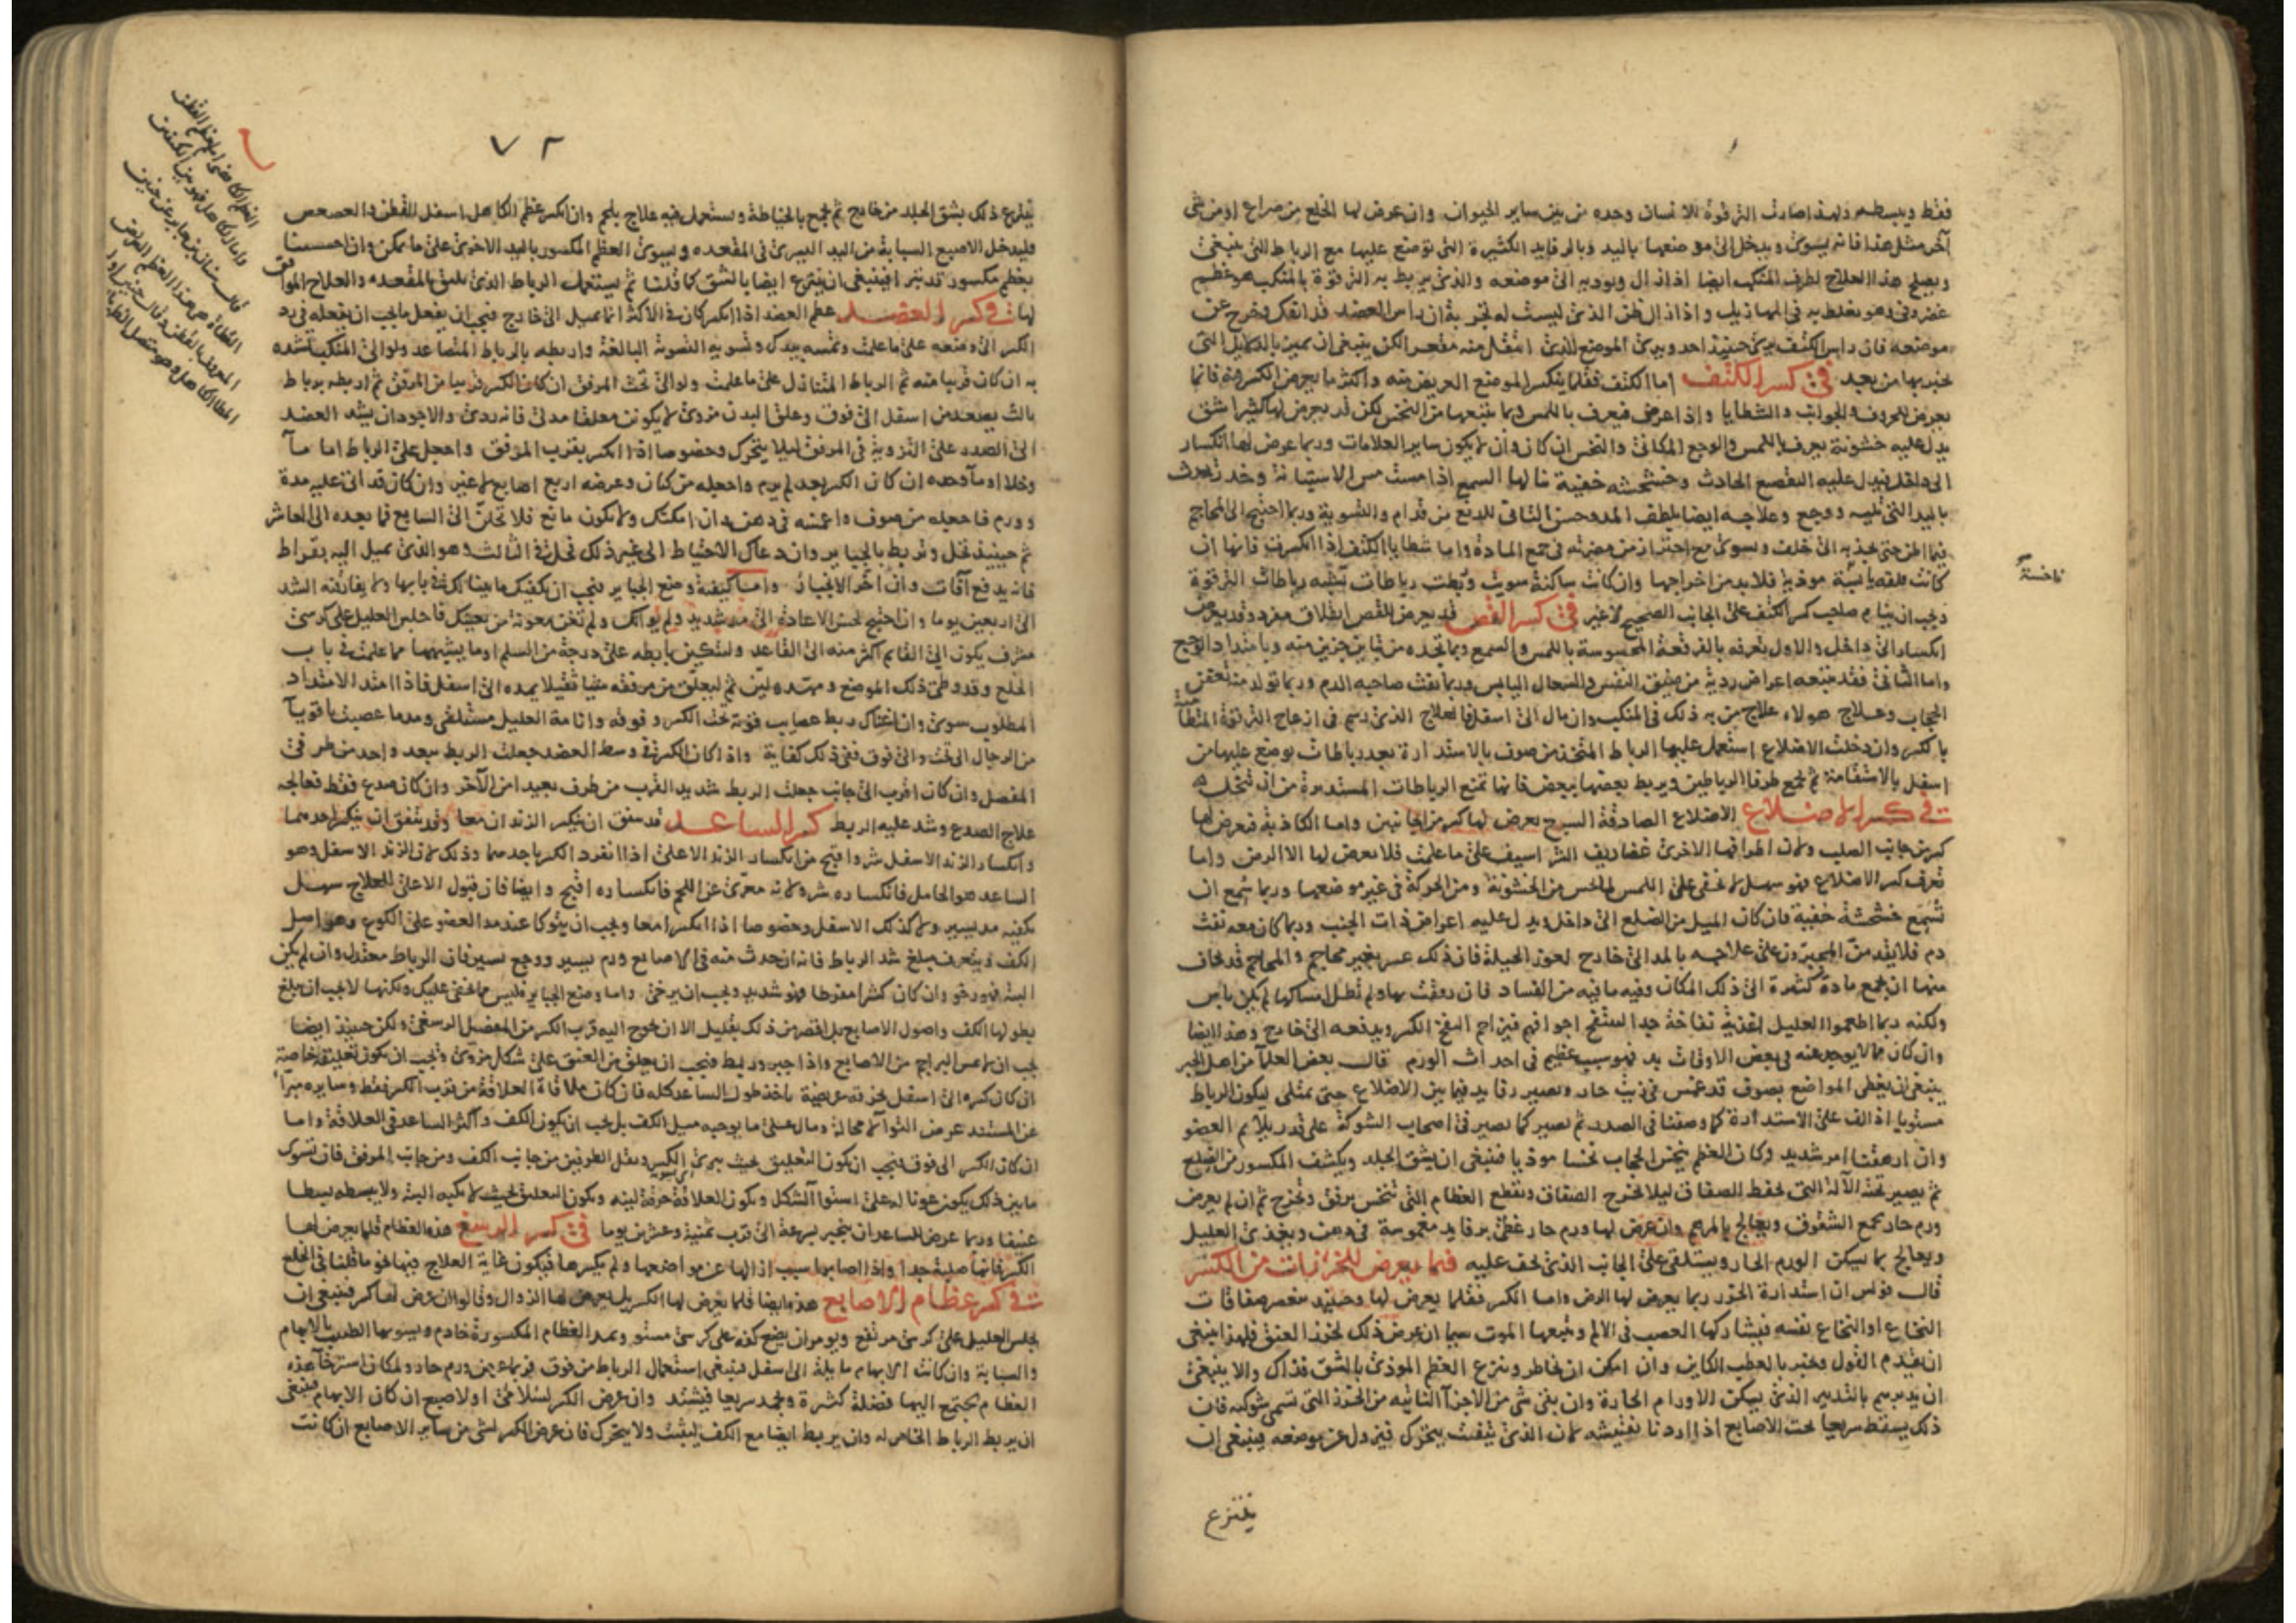 فقط ويبسطه ولهذا صارت الترقوة للانسان وحده من بين ساير الحيوان وان عرض لها الخلع من صراع او من شئ
آخر مثل هذا فانه يسوى ويدخل الى موضعها باليد وبالرفايد الكثيرة التى توضع عليها مع الرباط الذى ينبغى
ويصلح هذا العلاج لطرف المنكب ايضا اذا زال ويرد به الى موضعه والذى يربط به الترقوة بالمنكب هو عظم
غضروفى وهو يغلط به فى المهازيل واذا زال ظن الذى ليست له تجربة ان راس العضد قد انفك وخرج عن
موضعه فان راس الكتف يرى حينئذ احد ويرى الموضع الذى انتقل منه مقعرا لكن ينبغى ان يميز بالدلايل التى
نخبر بها من بعيد فى كسر الكتف اما الكتف فقلما ينكسر الموضع العريض منه واكثر ما يعرض الكسر منه فانما
يعرض للحروف والجوانب والشظايا واذا عرض فيعرف باللمس وبما يتبعها من النخس لكن قد يعرض لها كثيرا شق
يدل عليه خشونة يعرف باللمس والوجع المكانى والنخس ان كان وان لا يكون ساير العلامات وربما عرض لها انكسار
الى داخل فيدل عليه التقصع الحادث وخشخشه خفية ينالها السمع اذا مست مس الاستبانة وخدر يحدث
باليد التى تليه ووجع وعلاجه ايضا بلطف المد وحسن التاتى للدفع من قدام والتسوية وربما احتيج الى المحاجم
فيها الحز حتى يجذبه الى خلف ويسوى مع احتراز من مضرته فى جمع المادة واما شظايا الكتف اذا انكسرت فانها ان
كانت قلقه يابسة موذية فلا بد من اخراجها وان كانت ساكنة سويت وربطت رباطات تشبه رباطات الترقوة
ويجب ان ينام صاحب كسر الكتف على الجانب الصحيح لا غير فى كسر القص قد يعرض للقص انفلاق مفرد وقد يعرض
انكسار الى داخل والاول تعرفه بالفرقعة المحسوسة باللمس والسمع وبما تجده من تباين جزين منه وبامتداد الوجع
واما الثانى فقد يتبعه اعراض ردية من ضيق النفس والسعال اليابس وربما نفث صاحبه الدم وربما تولد منه تعفن
الحجاب وعلاج هولاء علاج من به ذلك فى المنكب وان مال الى اسفل فالعلاج الذى رسم فى ازعاج الترقوة المتطأمنة
بالكسر وان دخلت الاضلاع استعمل عليها الرباط المتخذ من صوف بالاستدارة بعد رباطات يوضع عليها من
اسفل بالاستقامة ثم يجمع طرفا الرباطين ويربط بعضها ببعض فانها تمنع الرباطات المستديرة من ان تنحل
فى كسر الاضلاع الاضلاع الصادقة السبع يعرض لها كسر من الجانبين واما الكاذبة فيعرض لها
كسر من جانب الصلب ولان اطرافها الاخرى غضاريف الشراسيف على ما علمت فلا يعرض لها الا الرض واما
تعرف كسر الاضلاع فهو سهل لا يخفى على اللمس لما يحس من الخشونة ومن الحركة فى غير موضعها وربما سمع ان
تسمع خشخشة خفية فان كان الميل من الضلع الى داخل ويدل عليه اعراض ذات الجنب وربما كان معه نفث
دم فلا يقدمن المجبرون على علاجه بالمد الى خارج لعوز الحيلة فان ذلك عسر بغير محاجم والمحاجم قد يخاف
منها ان تجمع مادة كثيرة الى ذلك المكان وفيه ما فيه من الفساد فان رفقت بها ولم تطل امساكها لم يكن باس
ولكنه ربما اطعموا العليل اغذية نفاخة جدا لتنتفخ اجوافهم فيزاحم النفخ الكسر ويدفعه الى خارج وهذا ايضا
وان كان مما لا يوجد منه فى بعض الاوقات بد فهو سبب عظيم فى احداث الورم قال بعض العلمآ من اهل الجبر
ينبغى ان يغطى المواضع بصوف قد غمس فى زيت حار وتصير رفايد فيما بين الاضلاع حتى يمتلى ليكون الرباط
مستويا اذا لف على الاستدارة كما وصفنا فى الصدر ثم تصير كما تصير فى اصحاب الشوكة على قدر يلايم العضو
وان ارهقنا امر شديد وكان العظم ينخس الحجاب نخسا موذيا فينبغى ان يشق الجلد ويكشف المكسور من الضلع
ثم يصير تحته الآلة التى تحفظ الصفاق ليلا يخرج الصفاق ويقطع العظام التى تنخس برفق وتخرج ثم ان لم يعرض
ورم حار يجمع الشقوق ويعالج بالمرهم وان عرض لها ورم حار غطى برفايد مغموسة فى دهن ويغذى العليل
ويعالج بما يسكن الورم الحار ويستلقى على الجانب الذى يخف عليه فيما يعرض للخرزات من الكسر
قال بولس ان استدارة الخرز ربما يعرض لها الرض واما الكسر فقلما يعرض لها وحينئذ تنعصر صفاقات
النخاع او النخاع نفسه فيشاركها العصب فى الالم ويتبعها الموت سيما ان عرض ذلك لخرز العنق فلهذا ينبغى
ان يقدم القول ويخبر بالعطب الكاين وان امكن ان يخاطر وينزع العظم الموذى بالشق فذاك والا ينبغى
ان يدبرهم بالتدبير الذى يسكن الاورام الحارة وان بقى شى من الاجزآ الناتية من الخرز التى تسمى شوكه فان
ذلك يسقط سريعا تحت الاصابع اذا اردنا تفتيشه لان الذى يتفتت يتحرك فيزول عن موضعه فينبغى ان
ينتزع
ناخسة
٧٢
ينتزع ذلك بشق الجلد من خارج ثم يجمع بالخياطة ويستعمل فيه علاج يلحم وان انكسر عظم الكاهل اسفل القطن والعصعص
فليدخل الاصبع السبابة من اليد اليسرى فى المقعده ويسوى العظم المكسور باليد الاخرى على ما يمكن وان احسسنا
بعظم مكسور قد تبرا فينبغى ان ينتزع ايضا بالشق كما قلنا ثم يستعمل الرباط الذى يليق بالمقعده والعلاج الموافق
لها فى كسر العضد عظم العضد اذا انكسر كان فى الاكثر انما يميل الى خارج فيجب ان يفعل ما يجب ان يفعله فى رد
الكسر الى وضعه على ما علمت وتمسه بيدك وتسويه التسوية البالغة واربطه بالرباط المتصاعد ولو الى المنكب تشده
به ان كان قريبا منه ثم الرباط المتنازل على ما علمت ولو الى تحت المرفق ان كان الكسر قريبا من المرفق ثم اربطه برباط
ثالث يصعد من اسفل الى فوق وعلق اليد من مزوى لا يكونن معلقا مدلى فانه ردئ والاجود ان يشد العضد
الى الصدر على التزوية فى المرفق ليلا يتحرك وخصوصا اذا انكسر بقرب المرفق واجعل على الرباط اما مآ
وخلا او مآ وحده ان كان الكسر بعد لم يرم واجعله من كتان وعرضه اربع اصابع لا غير وان كان قد اتى عليه مدة
وورم فاجعله من صوف واغمسه فى دهن وان امكنك ولا يكون مانع فلا تحلن الى السابع فما بعده الى العاشر
ثم حينيذ تحل وتربط بالجبايروان دعاك الاحتياط الى غير ذلك تحل فى الثالث وهو الذى يميل اليه بقراط
فانه يدفع آفات وان اخر الانجبار واما كيفية وضع الجباير فيجب ان يكفيك ما بينا لك فى بابها ولا يفارقنه الشد
الى اربعين يوما وان احتيج لحسن الاعادة الى مد شديد ولم يواتك ولم تغن معونة من يعينك فاجلس العليل على كرسى
مشرف يكون الى القايم اكثر منه الى القاعد ولتكين بابطه على درجة من السلم او ما يشبهها مما علمت فى باب
الخلع وقد وطى ذلك الموضع ومهده لين ثم ليعلق من مرفقه شيا ثقيلا يمده الى اسفل فاذا امتد الامتداد
المطلوب سوى وان اغناك ربط عصايب قوية تحت الكسر وفوقه وانامة العليل مستلقى ومدها عصبت باقويآ
من الرجال الى تحت والى فوق ففى ذلك كفاية واذا كان الكسر فى وسط العضد جعلت الربط ببعد واحد من طرفى
المفصل وان كان اقرب الى جانب جعلت الربط شديد القرب من طرف بعيدا من الآخر وان كان صدع فقط فعالجه
علاج الصدع وشد عليه الربط كسر الساعد قد يتفق ان ينكسر الزندان معا وقد يتفق ان ينكسر احدهما
وانكسار الزند الاسفل شر واقبح من انكسار الزند الاعلى اذا انفرد الكسر باحدهما وذلك لان الزند الاسفل وهو
الساعد هو الحامل فانكساره شر ولانه معرى عن اللحم فانكساره اقبح وايضا فان قبول الاعلى للعلاج سهل
يكفيه مد يسير ولا كذلك الاسفل وخصوصا اذا انكسرا معا ويجب ان يتوكا عند مد العضو على الكوع وهو اصل
الكف ويتعرف مبلغ شد الرباط فانه ان حدث منه فى الاصابع ورم يسير ووجع يسير فان الرباط معتدل وان لم يكن
البتة فهو رخو وان كان كثيرا مفرطا فهو شديد ويجب ان يرخى واما وضع الجباير فليس مما يخفى عليك ولكنها لا يجب ان يبلغ
بطولها الكف واصول الاصابع بل اقصر من ذلك بقليل الا ان يحوج اليه قرب الكسر من المفصل الرسغى ولكن حينيذ ايضا
يجب ان لا يمس البراجم من الاصابع واذا جبر وربط فيجب ان يعلق من العنق على شكل مزوى ويجب ان يكون تعليقه خاصة
ان كان كسره الى اسفل بخرقة عريضة ياخذ طول الساعد كله فان كان ملاقاة العلاقة من قرب الكسر فقط وسايره مبرا
عن المستند عرض التوآ لا محالة ومال على ما يوجبه ميل الكف بل يجب ان يكون الكف واكثر الساعد فى العلاقة واما
ان كان الكسر الى فوق فيجب ان يكون التعليق بحيث يبرى الكسر ويقل الطرفين من جانب الكف ومن جانب المرفق فان تترك
ما بين ذلك يكون عونا له على استوآ الشكل ويكون العلاقة خرقة لينه ويكون التعليق بحيث لا يكبه البتة ولا يبسطه بسطا
عنيفا وربما عرض للساعد ان ينجبر بسرعة الى قرب ثمنية وعشرين يوما فى كسر الرسغ هذه العظام قلما يعرض لها
الكسر فانها صلبة جدا واذا اصابها سبب ازالها عن مواضعها ولم يكسرها فيكون غاية العلاج فيها نحو ما قلنا فى الخلع
فى كسر عظام الاصابع هذه ايضا قلما يعرض لها الكسر بل يعرض لها الزوال وقالوا ان عرض لها كسر فينبغى ان
يجلس العليل على كرسى مرتفع ويومر ان يضع كفه على كرسى مستو ويمد العظام المكسورة خادم ويسويها الطبيب بالابهام
والسبابة وان كانت الابهام مايلة الى اسفل فينبغى استعمال الرباط من فوق فربما عرض ورم حار ولمكان استرخآ هذه
العظام يجتمع اليها فضلة كثيرة ويجمد سريعا فيشتد وان عرض الكسر لسلامى او لاصبع ان كان الابهام فينبغى
ان يربط الرباط الخاص له وان يربط ايضا مع الكف ليثبت ولا يتحرك فان عرض الكسر لشى من ساير الاصابع ان كانت